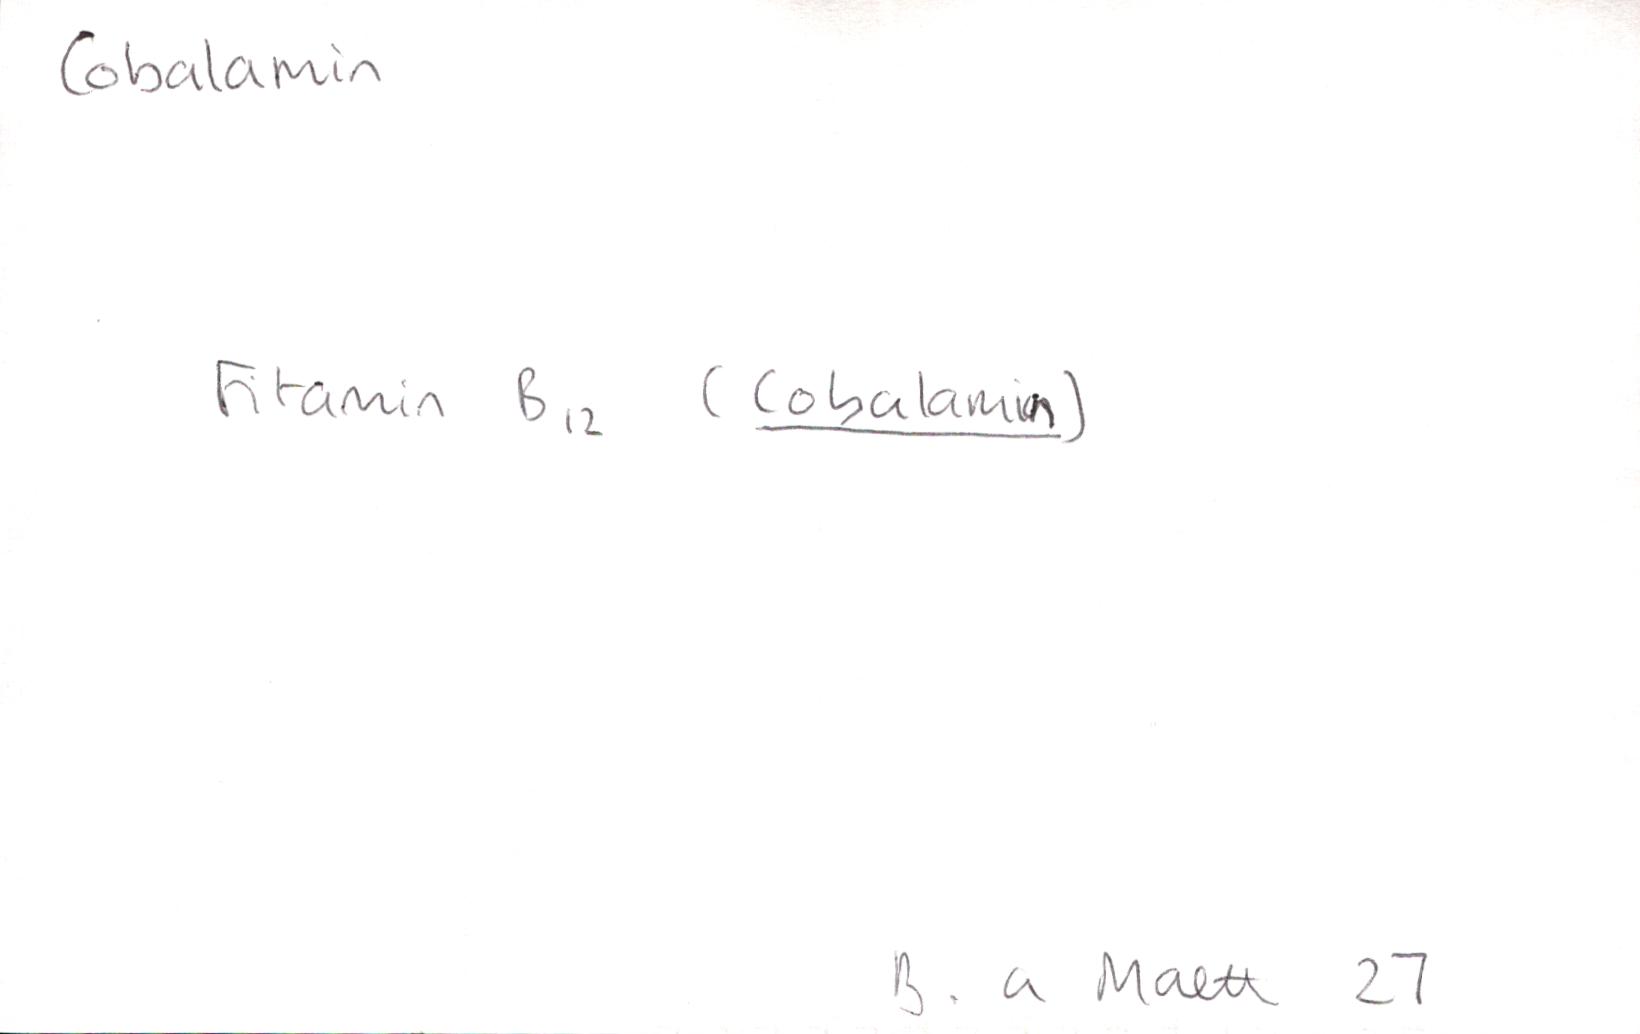 Cobalamin
Fitamin B12 (Cobalamin)
B. a Maeth 27